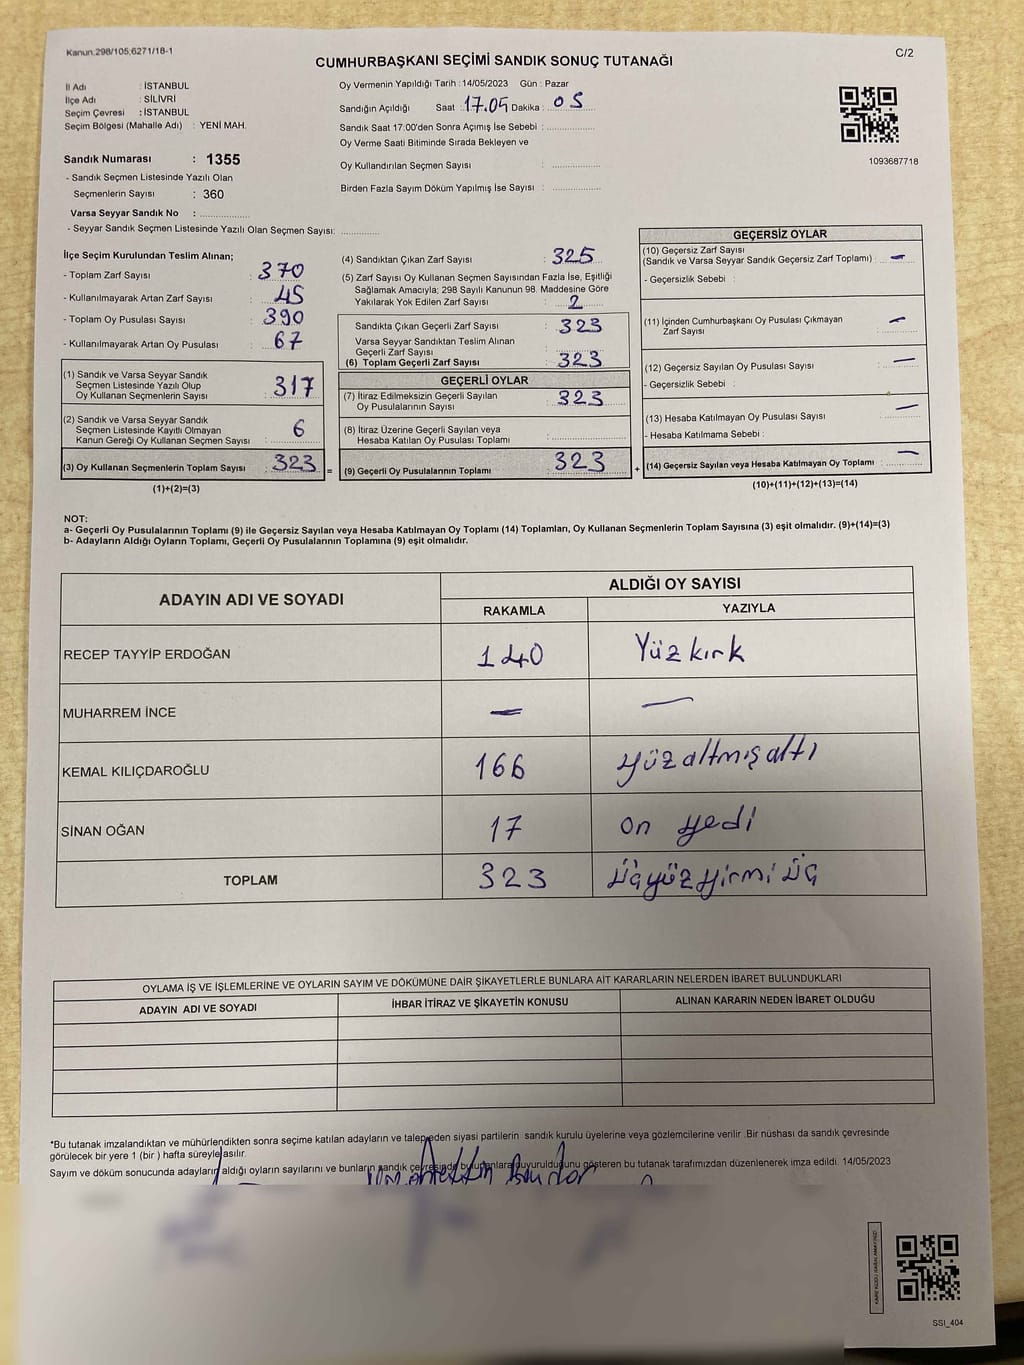 Kanun.298/105;6271/18-1
C/2
CUMHURBAŞKANI SEÇİMİ SANDIK SONUÇ TUTANAĞI
İl Adı : İSTANBUL
İlçe Adı : SİLİVRİ
Seçim Çevresi : İSTANBUL
Seçim Bölgesi (Mahalle Adı) : YENİ MAH.
Sandık Numarası : 1355
- Sandık Seçmen Listesinde Yazılı Olan
Seçmenlerin Sayısı : 360
Varsa Seyyar Sandık No :
- Seyyar Sandık Seçmen Listesinde Yazılı Olan Seçmen Sayısı:
Oy Vermenin Yapıldığı Tarih : 14/05/2023 Gün : Pazar
Sandığın Açıldığı Saat : 17.05 Dakika : 05
Sandık Saat 17:00'den Sonra Açımış İse Sebebi :
Oy Verme Saati Bitiminde Sırada Bekleyen ve
Oy Kullandırılan Seçmen Sayısı :
Birden Fazla Sayım Döküm Yapılmış İse Sayısı :
1093687718
İlçe Seçim Kurulundan Teslim Alınan;
- Toplam Zarf Sayısı : 370
- Kullanılmayarak Artan Zarf Sayısı : 45
- Toplam Oy Pusulası Sayısı : 390
- Kullanılmayarak Artan Oy Pusulası : 67
(1) Sandık ve Varsa Seyyar Sandık
Seçmen Listesinde Yazılı Olup
Oy Kullanan Seçmenlerin Sayısı : 317
(2) Sandık ve Varsa Seyyar Sandık
Seçmen Listesinde Kayıtlı Olmayan
Kanun Gereği Oy Kullanan Seçmen Sayısı : 6
(3) Oy Kullanan Seçmenlerin Toplam Sayısı : 323 =
(1)+(2)=(3)
(4) Sandıktan Çıkan Zarf Sayısı : 325
(5) Zarf Sayısı Oy Kullanan Seçmen Sayısından Fazla İse, Eşitliği
Sağlamak Amacıyla; 298 Sayılı Kanunun 98. Maddesine Göre
Yakılarak Yok Edilen Zarf Sayısı : 2
Sandıkta Çıkan Geçerli Zarf Sayısı : 323
Varsa Seyyar Sandıktan Teslim Alınan
Geçerli Zarf Sayısı :
(6) Toplam Geçerli Zarf Sayısı : 323
GEÇERLİ OYLAR
(7) İtiraz Edilmeksizin Geçerli Sayılan
Oy Pusulalarının Sayısı : 323
(8) İtiraz Üzerine Geçerli Sayılan veya
Hesaba Katılan Oy Pusulası Toplamı :
(9) Geçerli Oy Pusulalarının Toplamı : 323 +
GEÇERSİZ OYLAR
(10) Geçersiz Zarf Sayısı
(Sandık ve Varsa Seyyar Sandık Geçersiz Zarf Toplamı) : —
- Geçersizlik Sebebi :
(11) İçinden Cumhurbaşkanı Oy Pusulası Çıkmayan
Zarf Sayısı : —
(12) Geçersiz Sayılan Oy Pusulası Sayısı : —
- Geçersizlik Sebebi :
(13) Hesaba Katılmayan Oy Pusulası Sayısı : —
- Hesaba Katılmama Sebebi :
(14) Geçersiz Sayılan veya Hesaba Katılmayan Oy Toplamı : —
(10)+(11)+(12)+(13)=(14)
NOT:
a- Geçerli Oy Pusulalarının Toplamı (9) ile Geçersiz Sayılan veya Hesaba Katılmayan Oy Toplamı (14) Toplamları, Oy Kullanan Seçmenlerin Toplam Sayısına (3) eşit olmalıdır. (9)+(14)=(3)
b- Adayların Aldığı Oyların Toplamı, Geçerli Oy Pusulalarının Toplamına (9) eşit olmalıdır.
ADAYIN ADI VE SOYADI
ALDIĞI OY SAYISI
RAKAMLA YAZIYLA
RECEP TAYYİP ERDOĞAN 140 Yüz kırk
MUHARREM İNCE — —
KEMAL KILIÇDAROĞLU 166 yüz altmış altı
SİNAN OĞAN 17 on yedi
TOPLAM 323 üçyüz yirmi üç
OYLAMA İŞ VE İŞLEMLERİNE VE OYLARIN SAYIM VE DÖKÜMÜNE DAİR ŞİKAYETLERLE BUNLARA AİT KARARLARIN NELERDEN İBARET BULUNDUKLARI
ADAYIN ADI VE SOYADI İHBAR İTİRAZ VE ŞİKAYETİN KONUSU ALINAN KARARIN NEDEN İBARET OLDUĞU
*Bu tutanak imzalandıktan ve mühürlendikten sonra seçime katılan adayların ve talep eden siyasi partilerin sandık kurulu üyelerine veya gözlemcilerine verilir .Bir nüshası da sandık çevresinde
görülecek bir yere 1 (bir ) hafta süreyle asılır.
Sayım ve döküm sonucunda adayların aldığı oyların sayılarını ve bunların sandık çevresinde bulunanlara duyurulduğunu gösteren bu tutanak tarafımızdan düzenlenerek imza edildi. 14/05/2023
SSI_404